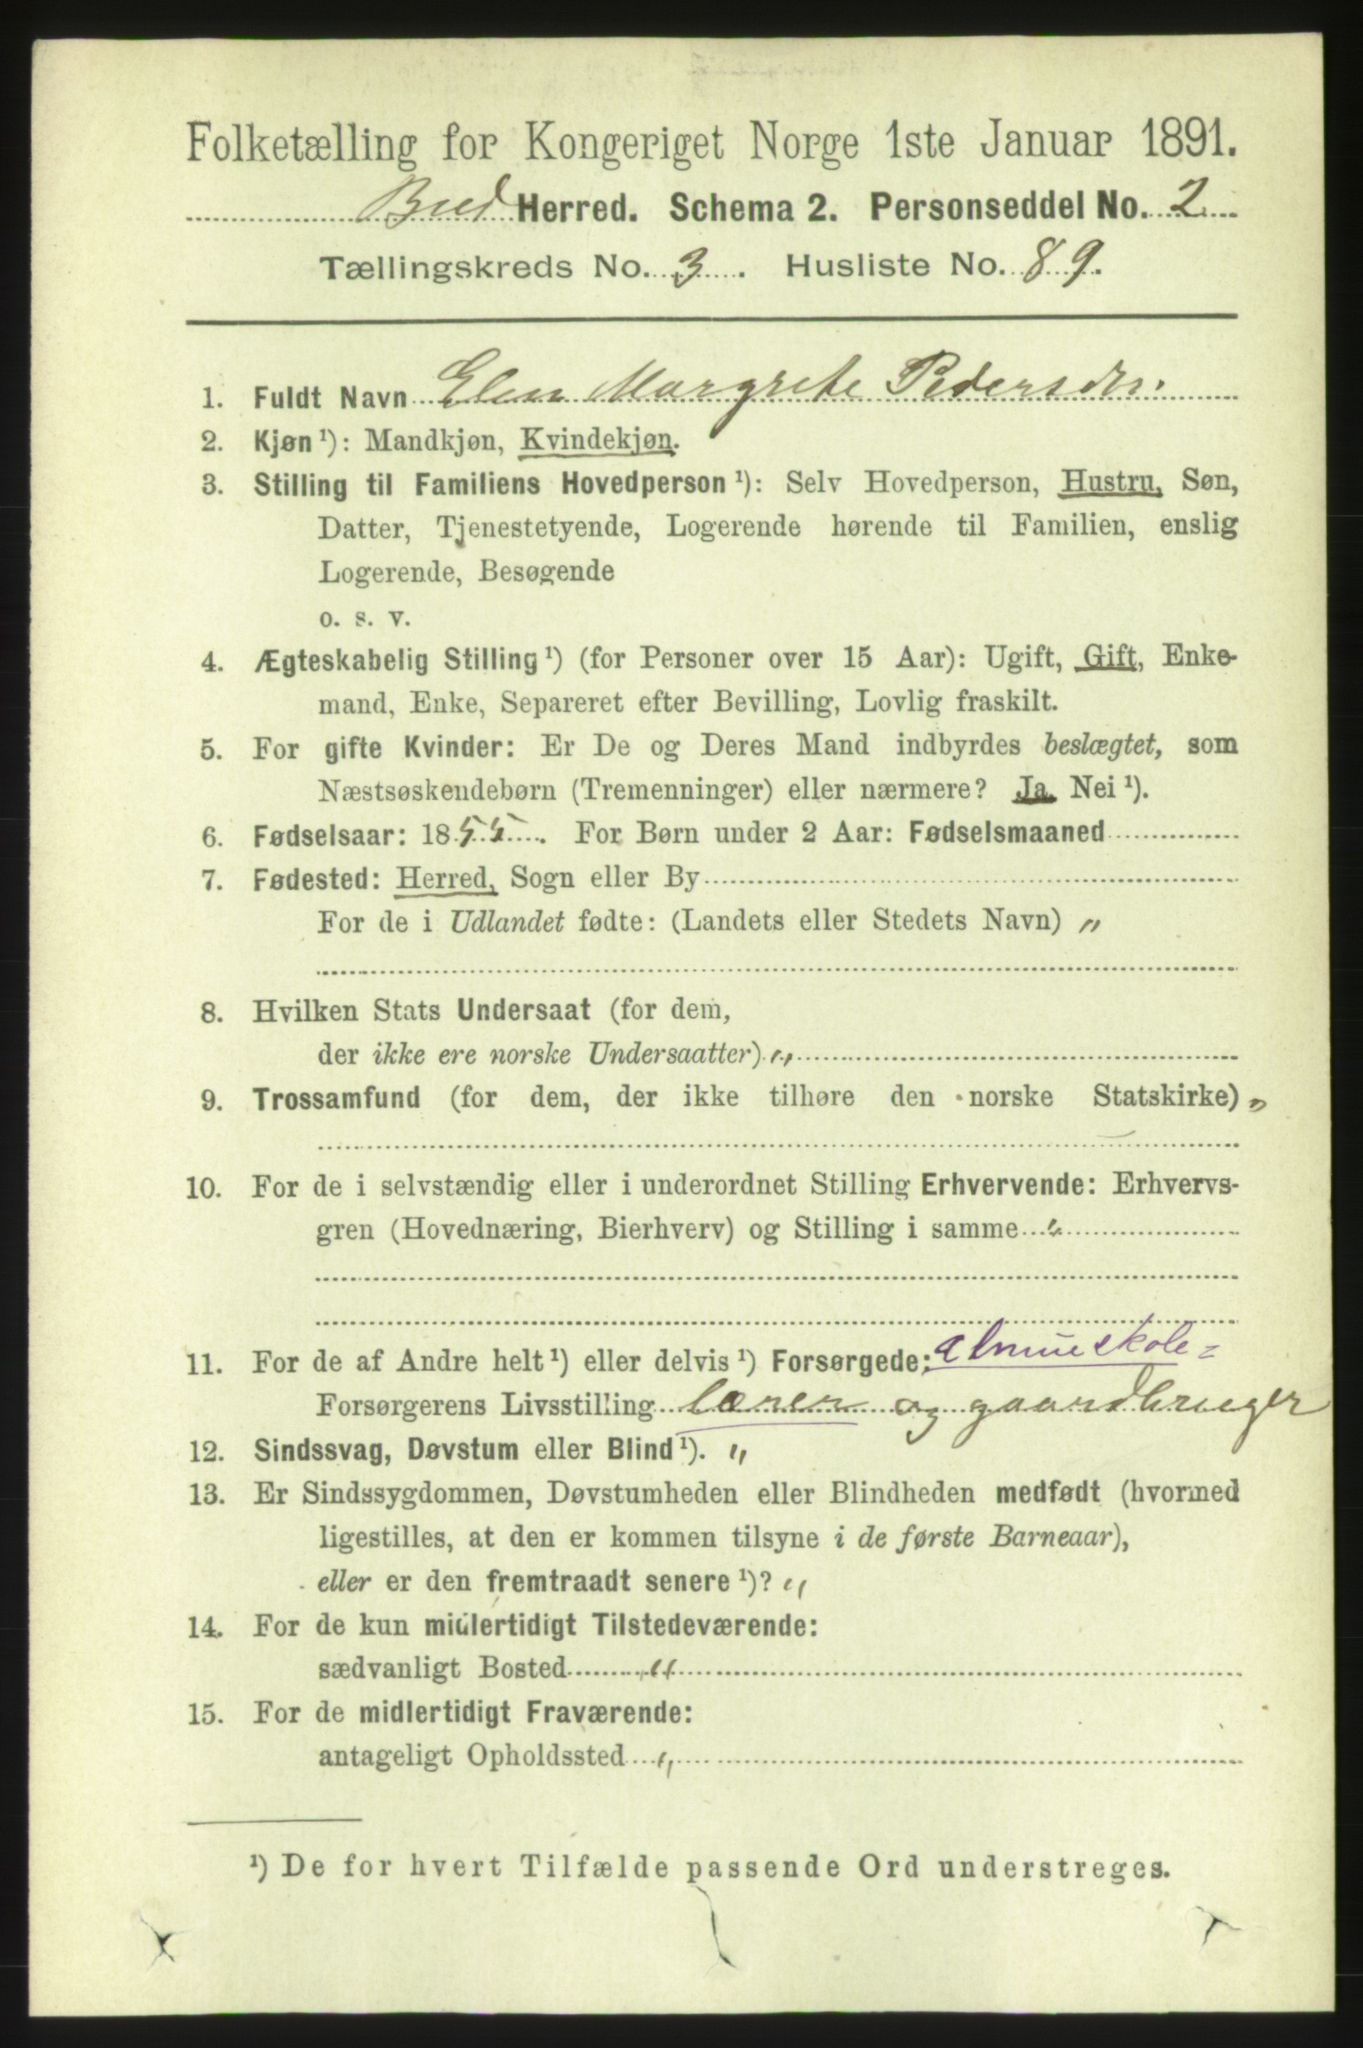 Folketælling for Kongeriget Norge 1ste Januar 1891.
Bud Herred. Schema 2. Personseddel No. 2
Tællingskreds No. 3. Husliste No. 89.
1. Fuldt Navn Elen Margrete Pedersdtr.
2. Kjøn ¹): Mandkjøn, Kvindekjøn.
3. Stilling til Familiens Hovedperson ¹): Selv Hovedperson, Hustru, Søn,
Datter, Tjenestetyende, Logerende hørende til Familien, enslig
Logerende, Besøgende
o. s. v.
4. Ægteskabelig Stilling ¹) (for Personer over 15 Aar): Ugift, Gift, Enke-
mand, Enke, Separeret efter Bevilling, Lovlig fraskilt.
5. For gifte Kvinder: Er De og Deres Mand indbyrdes beslægtet, som
Næstsøskendebørn (Tremenninger) eller nærmere? Ja, Nei ¹).
6. Fødselsaar: 1855. For Børn under 2 Aar: Fødselsmaaned
7. Fødested: Herred, Sogn eller By
For de i Udlandet fødte: (Landets eller Stedets Navn) "
8. Hvilken Stats Undersaat (for dem,
der ikke ere norske Undersaatter) "
9. Trossamfund (for dem, der ikke tilhøre den norske Statskirke) "
10. For de i selvstændig eller i underordnet Stilling Erhvervende: Erhvervs-
gren (Hovednæring, Bierhverv) og Stilling i samme "
11. For de af Andre helt ¹) eller delvis ¹) Forsørgede: almueskole=
Forsørgerens Livsstilling lærer og gaardbruger
12. Sindssvag, Døvstum eller Blind ¹). "
13. Er Sindssygdommen, Døvstumheden eller Blindheden medfødt (hvormed
ligestilles, at den er kommen tilsyne i de første Barneaar),
eller er den fremtraadt senere ¹)? "
14. For de kun midlertidigt Tilstedeværende:
sædvanligt Bosted "
15. For de midlertidigt Fraværende:
antageligt Opholdssted "
¹) De for hvert Tilfælde passende Ord understreges.